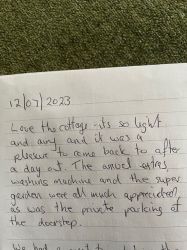 12/07/2023
Love the cottage - its so light
and airy and it was a
pleasure to come back to after
a day out. The
washing machine and the super
garden were all much appreciated
as was the private parking at
the doorstep.
We had